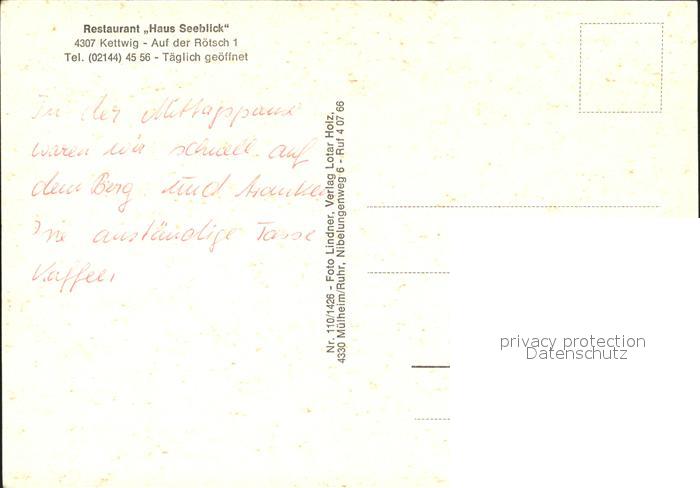 Restaurant „Haus Seeblick“
4307 Kettwig - Auf der Rötsch 1
Tel. (02144) 45 56 - Täglich geöffnet
In der Mittagspause
waren wir schnell auf
dem Berg und tranken
'ne anständige Tasse
Kaffee.
Nr. 110/1426 - Foto Lindner, Verlag Lotar Holz,
4330 Mülheim/Ruhr, Nibelungenweg 6 - Ruf 4 07 66
privacy protection
Datenschutz